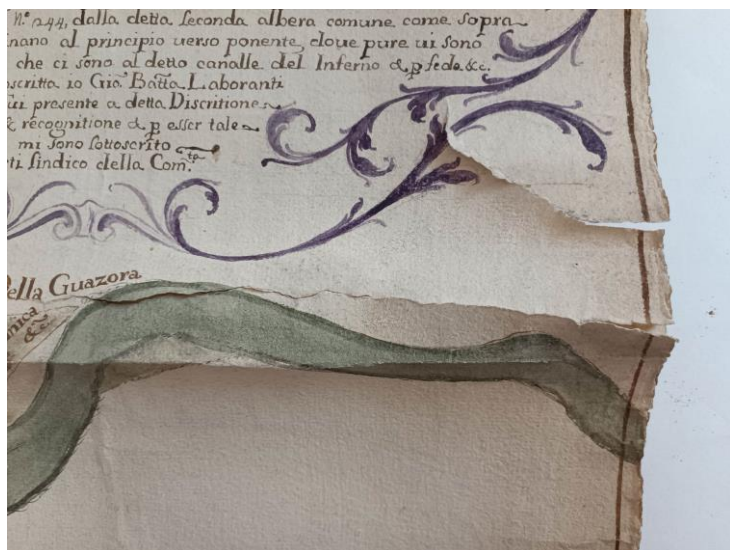 N.º 244, dalla detta seconda albera comune come sopra
inano al principio uerso ponente, doue pure ui sono
che ci sono al detto canalle del Inferno & p fede &c.
oscritta io Gio' Batta Laboranti
ui presente a detta Discritione
& recognitione & p esser tale
mi sono sottoscrito
ti sindico della Com.tà
Della Guazora
nica
&c